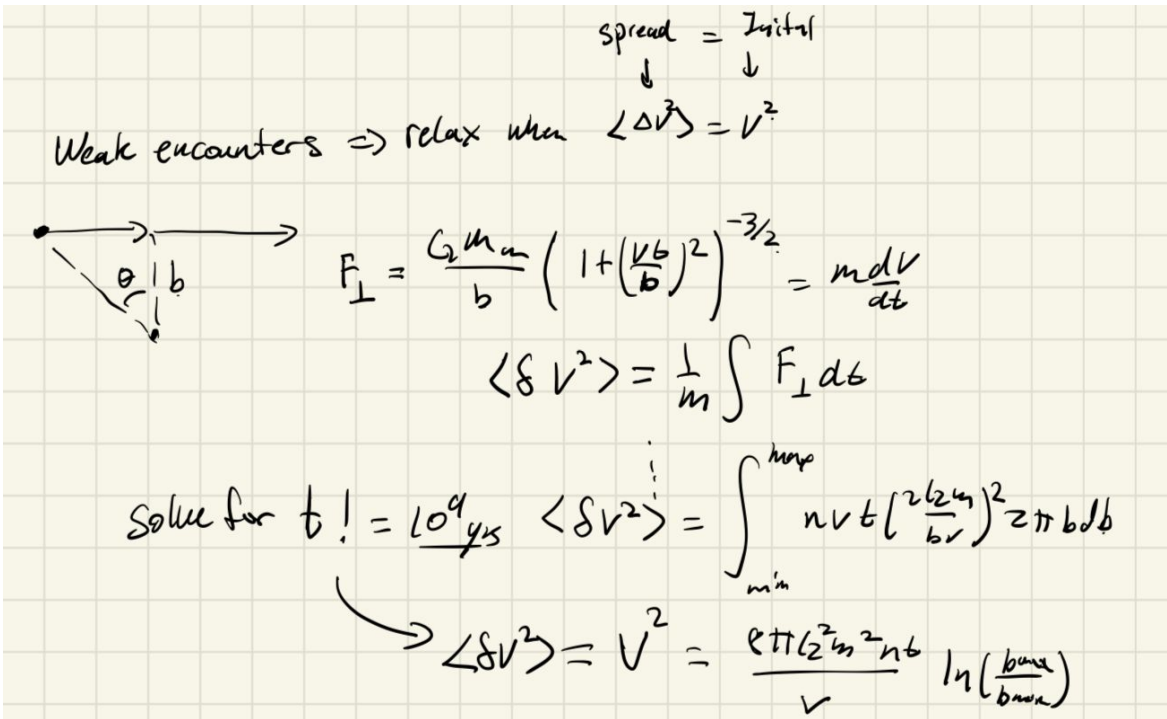 spread = Initial
↓ ↓
Weak encounters => relax when <ΔV²> = V²
θ b
F⊥ = G m m / b (1+(vt/b)²)^(-3/2) = m dv/dt
<δ V²> = 1/m ∫ F⊥ dt
Solve for t! = 10⁹ yrs <δv²> = ∫_min^max n v t (2Gm/bv)² 2π b db
<δv²> = V² = 8πG²m²nt / v ln(bmax/bmin)